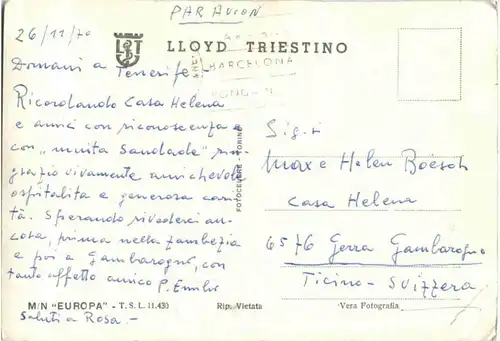 PAR AVION
26/11/70
LLOYD TRIESTINO
BARCELONA
Domani a Tenerife -
Ricordando Casa Helena
e amici con riconoscenza e
con „muita Saudade" rin-
grazio vivamente amichevole
ospitalità e generosa cari-
tà. Sperando rivederci an-
cora, prima nella Zambezia
e poi a Gambarogno, con
tanto affetto amico P. Emilio
FOTOCELERE - TORINO
Sig.ri
Max e Helen Boesch
Casa Helena
6576 Gerra Gambarogno
Ticino - Svizzera
M/N "EUROPA" - T. S. L. 11.430
Rip. Vietata
Vera Fotografia
Saluti a Rosa. -